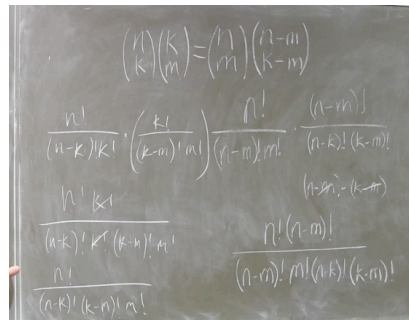 (n k)(k m) = (n m)(n-m k-m)
n!/((n-k)!k!) · (k!/((k-m)!m!)) n!/((n-m)!m!) · (n-m)!/((n-k)!(k-m)!)
(n-m)-(k-m)
n! k!/((n-k)! k! (k-m)! m!)
n!(n-m)!/((n-m)! m!(n-k)!(k-m)!)
n!/((n-k)!(k-m)! m!)